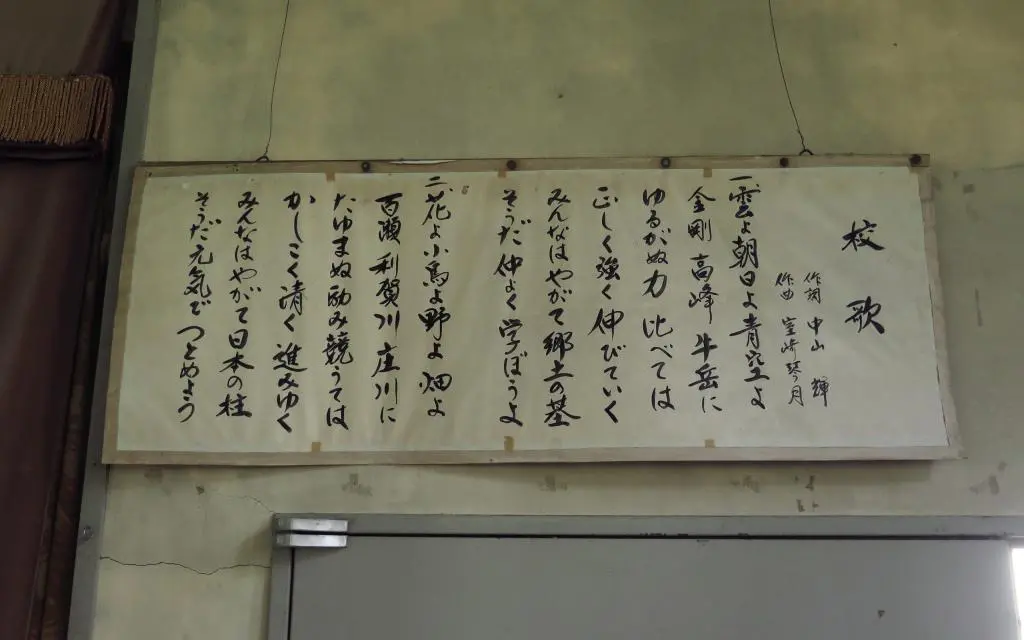 校歌
作詞 中山 輝
作曲 室崎琴月
一、雲よ朝日よ青空よ
金剛 高峰 牛岳に
ゆるがぬ力 比べては
正しく強く伸びていく
みんなはやがて郷土の基
そうだ仲よく学ぼうよ
二、花よ小鳥よ野よ畑よ
百瀬 利賀川 庄川に
たゆまぬ励み競うては
かしこく清く進みゆく
みんなはやがて日本の柱
そうだ元気でつとめよう